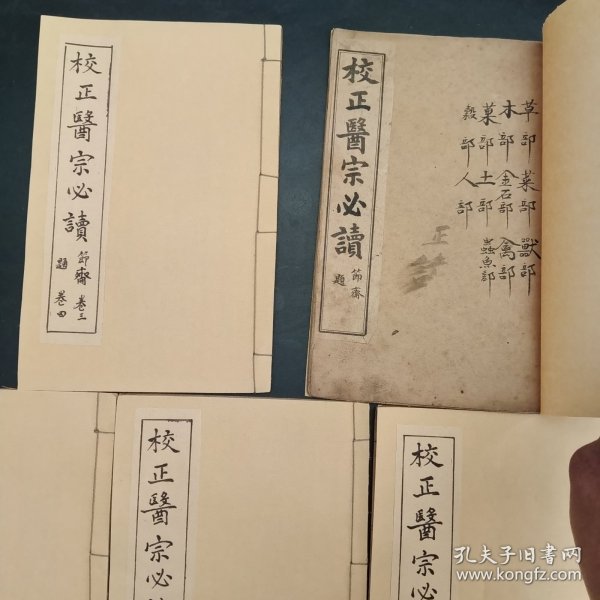 校正醫宗必讀
節齋題
卷三
卷四
校正醫宗必讀
節齋題
草部 菜部 獸部
木部 金石部 禽部
菓部 土部 蟲魚部
穀部 人部
校正醫宗必
校正醫宗必
孔夫子旧书网
www.kongfz.com